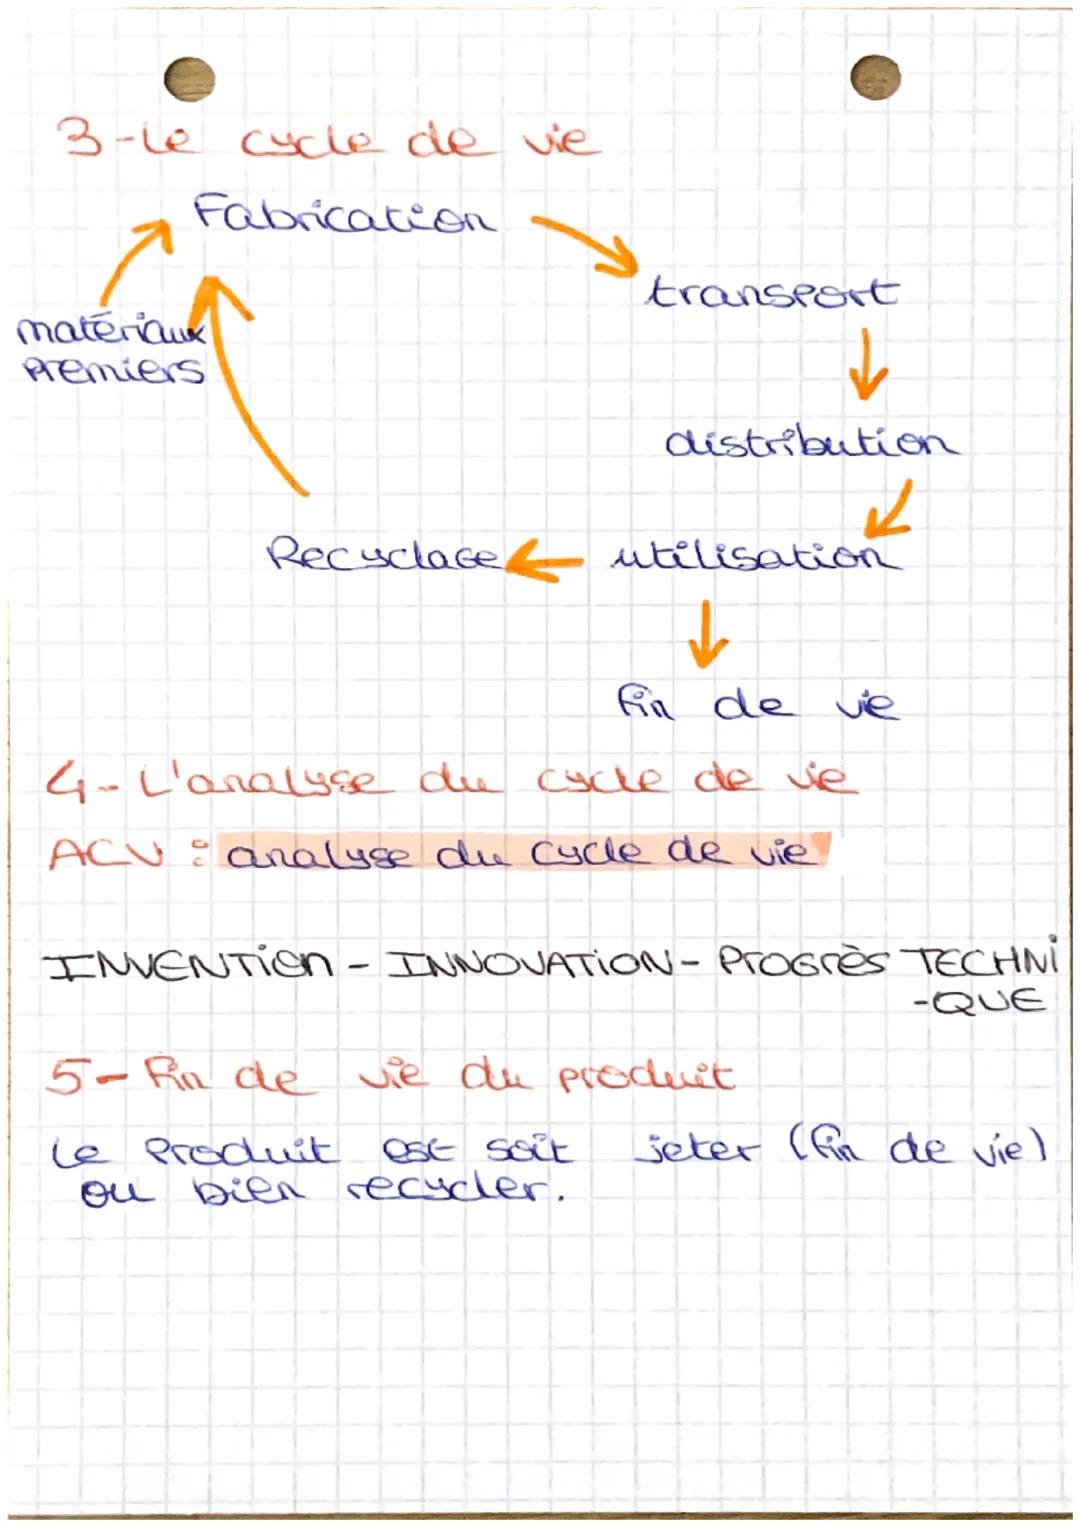 3-Le cycle de vie
Fabrication
transport
matériaux
premiers
distribution
Recyclage
utilisation
fin de vie
4- L'analyse du cycle de vie
ACV : analyse du cycle de vie
INVENTiON - INNOVATiON - PrOGrès TECHNi
-QUE
5- Fin de vie du produit
Le Produit est soit jeter (fin de vie)
ou bien recycler.